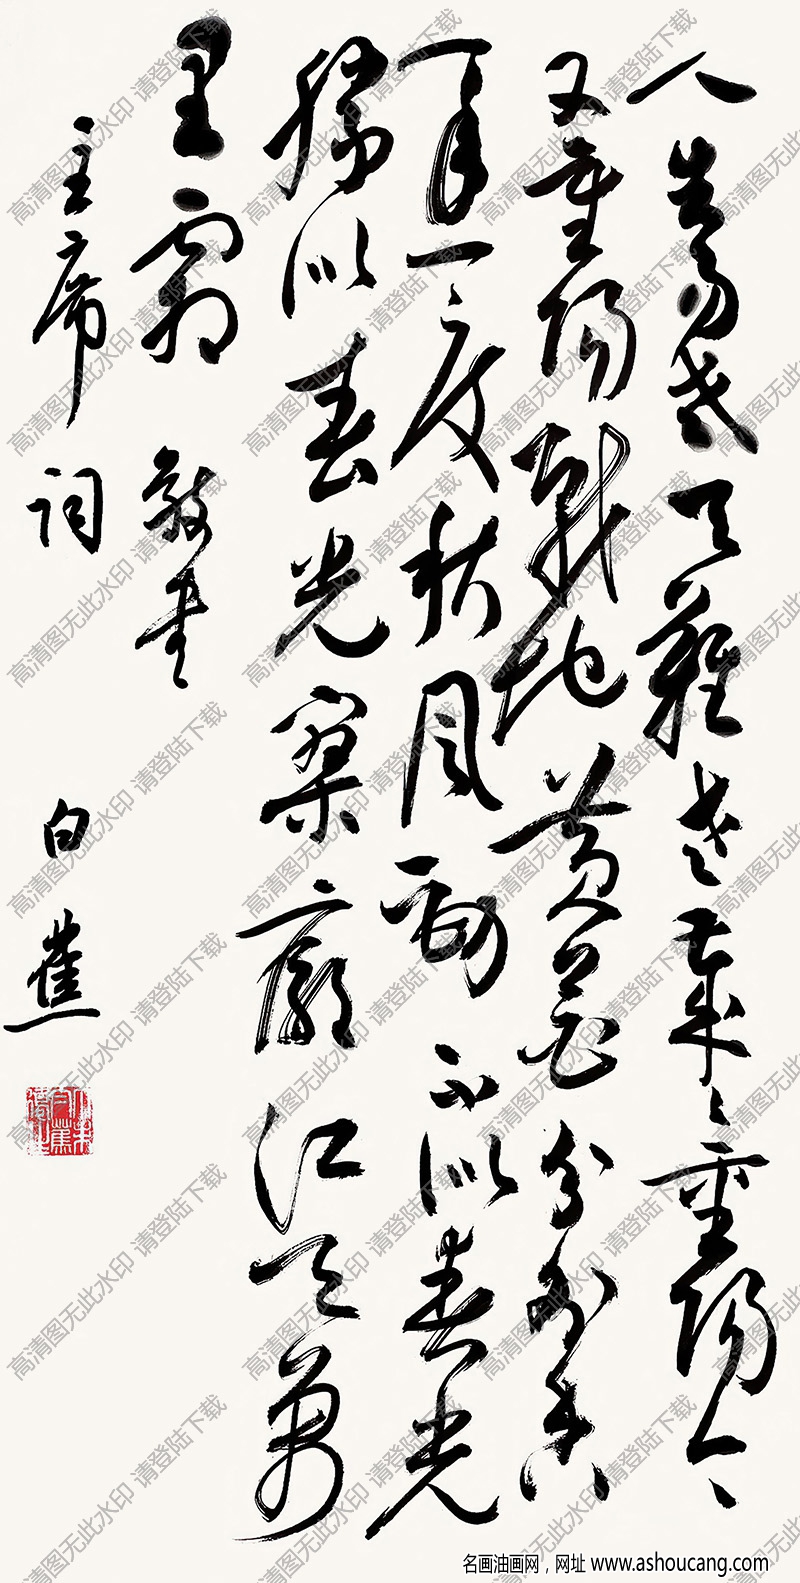 人生易老天難老歲々重陽今
又重陽戰地黃花分外香
一年一度秋風勁不似春光
勝似春光寥廓江天萬
里霜 敬書
主席詞 白蕉
高清图无此水印 请登陆下载
名画油画网，网址 www.ashoucang.com